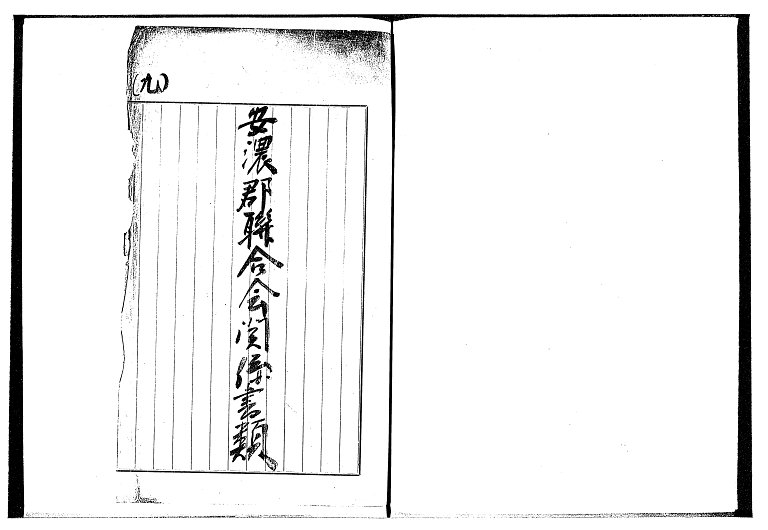 (九)
安濃郡聯合会関係書類